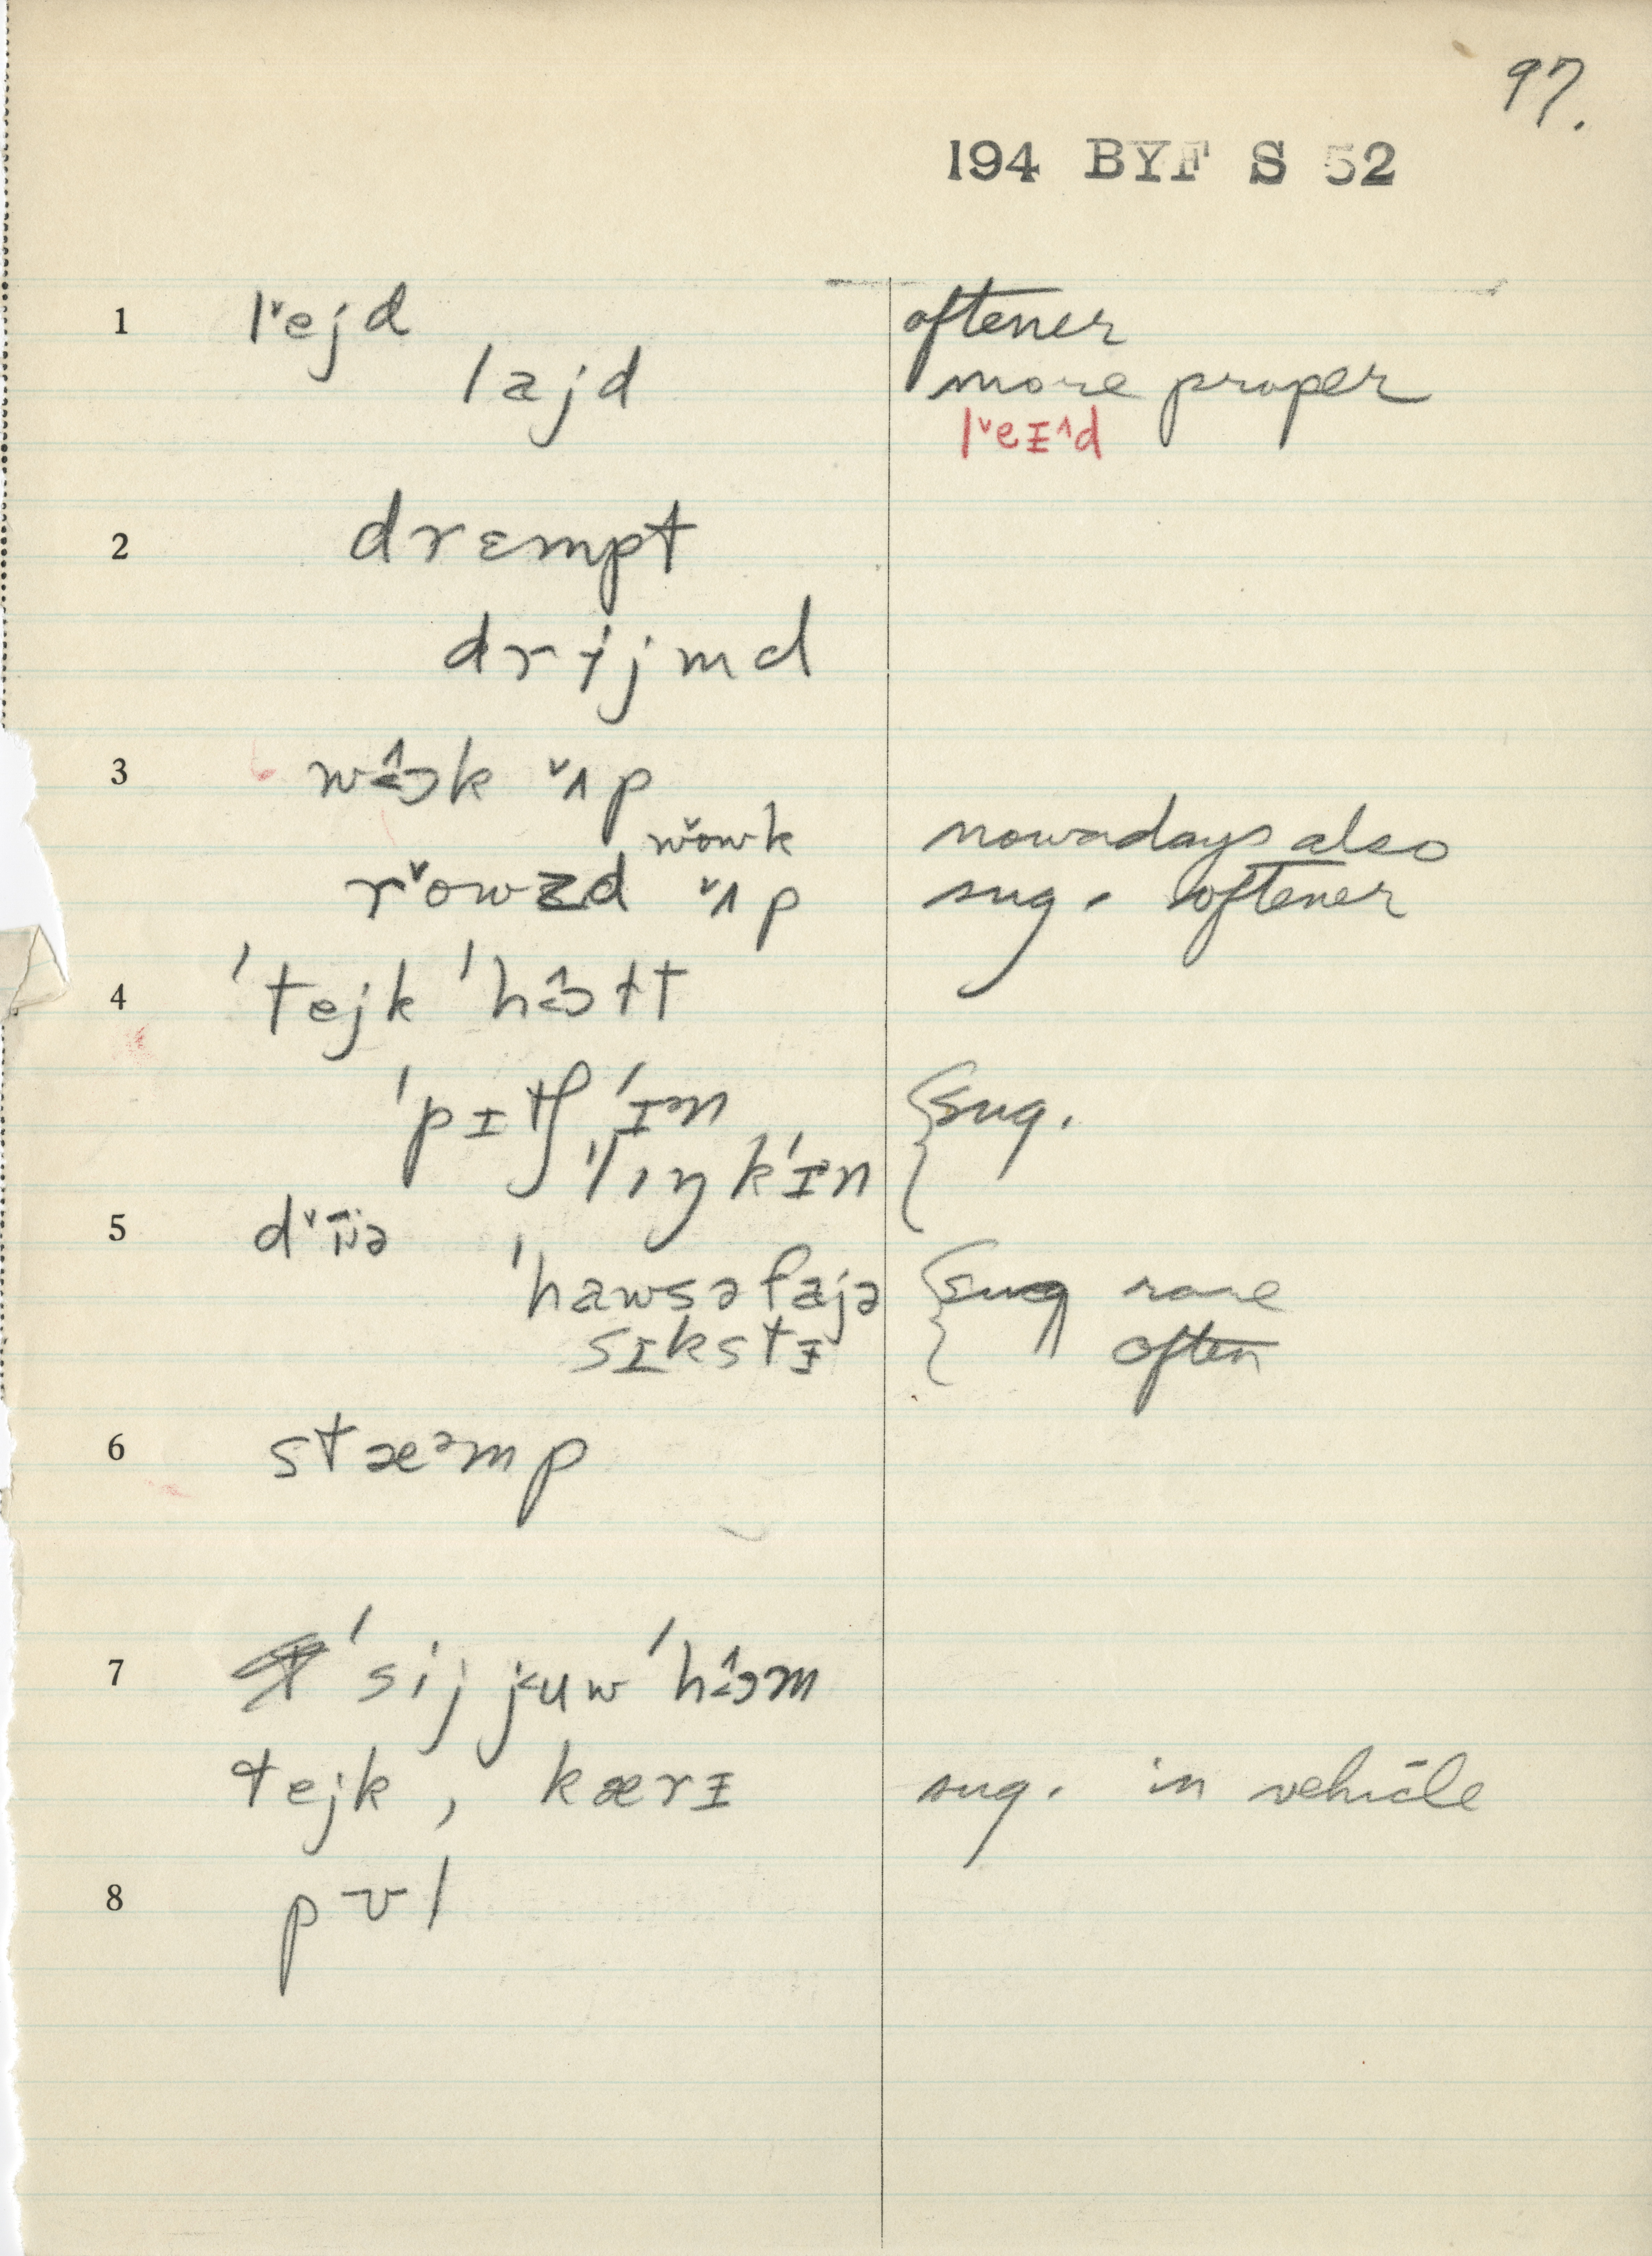 97.
194 BYF S 52
1 lˇejd oftener
lajd more proper
lˇeɪ^d
2 drɛmpt
drɨjmd
3 wɔ̂k ˇʌp
wˇowk nowadays also
rˇowzd ˇʌp sug. oftener
4 'tejk 'hɔ̂lt
'pɪtʃ 'ɪᵊn { sug.
'lɪŋk 'ɪᵊn
5 dˇɪ̈ə
'hawsəfajə { sug rare
sɪkstɪ often
6 stæᵊmp
7 'sij juw 'hɔ̂m
tejk , kærɪ sug. in vehicle
8 pʊl